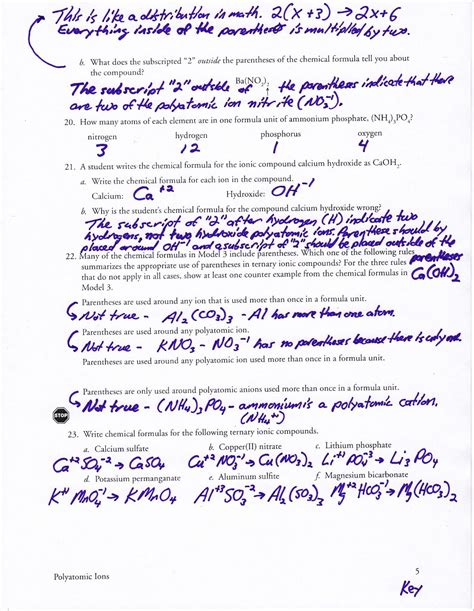 This is like a distribution in math. 2(x+3) → 2x+6
Everything inside of the parenthesis is multiplied by two.
b. What does the subscripted "2" outside the parentheses of the chemical formula tell you about
the compound?
Ba(NO2)2
The subscript "2" outside of the parentheses indicate that there
are two of the polyatomic ion nitrite (NO2⁻¹).
20. How many atoms of each element are in one formula unit of ammonium phosphate, (NH4)3PO4?
nitrogen hydrogen phosphorus oxygen
3 12 1 4
21. A student writes the chemical formula for the ionic compound calcium hydroxide as CaOH2.
a. Write the chemical formula for each ion in the compound.
Calcium: Ca⁺² Hydroxide: OH⁻¹
b. Why is the student's chemical formula for the compound calcium hydroxide wrong?
The subscript of "2" after hydrogen (H) indicate two
hydrogens, not two hydroxide polyatomic ions. Parenthese should by
placed around OH⁻¹ and a subscript of "2" should be placed outside of the
parentheses
22. Many of the chemical formulas in Model 3 include parentheses. Which one of the following rules
summarizes the appropriate use of parentheses in ternary ionic compounds? For the three rules
that do not apply in all cases, show at least one counter example from the chemical formulas in
Model 3.
Ca(OH)2
Parentheses are used around any ion that is used more than once in a formula unit.
Not true - Al2(CO3)3 - Al has more than one atom.
Parentheses are used around any polyatomic ion.
Not true - KNO3 - NO3⁻¹ has no parentheses because there is only one.
Parentheses are used around any polyatomic ion used more than once in a formula unit.
Parentheses are only used around polyatomic anions used more than once in a formula unit.
Not true - (NH4)3PO4 - ammonium is a polyatomic cation.
(NH4⁺¹)
STOP
23. Write chemical formulas for the following ternary ionic compounds.
a. Calcium sulfate b. Copper(II) nitrate c. Lithium phosphate
Ca⁺² SO4⁻² → CaSO4 Cu⁺² NO3⁻¹ → Cu(NO3)2 Li⁺¹ PO4⁻³ → Li3PO4
d. Potassium permanganate e. Aluminum sulfite f. Magnesium bicarbonate
K⁺¹ MnO4⁻¹ → KMnO4 Al⁺³ SO3⁻² → Al2(SO3)3 Mg⁺² HCO3⁻¹ → Mg(HCO3)2
Polyatomic Ions 5
Key